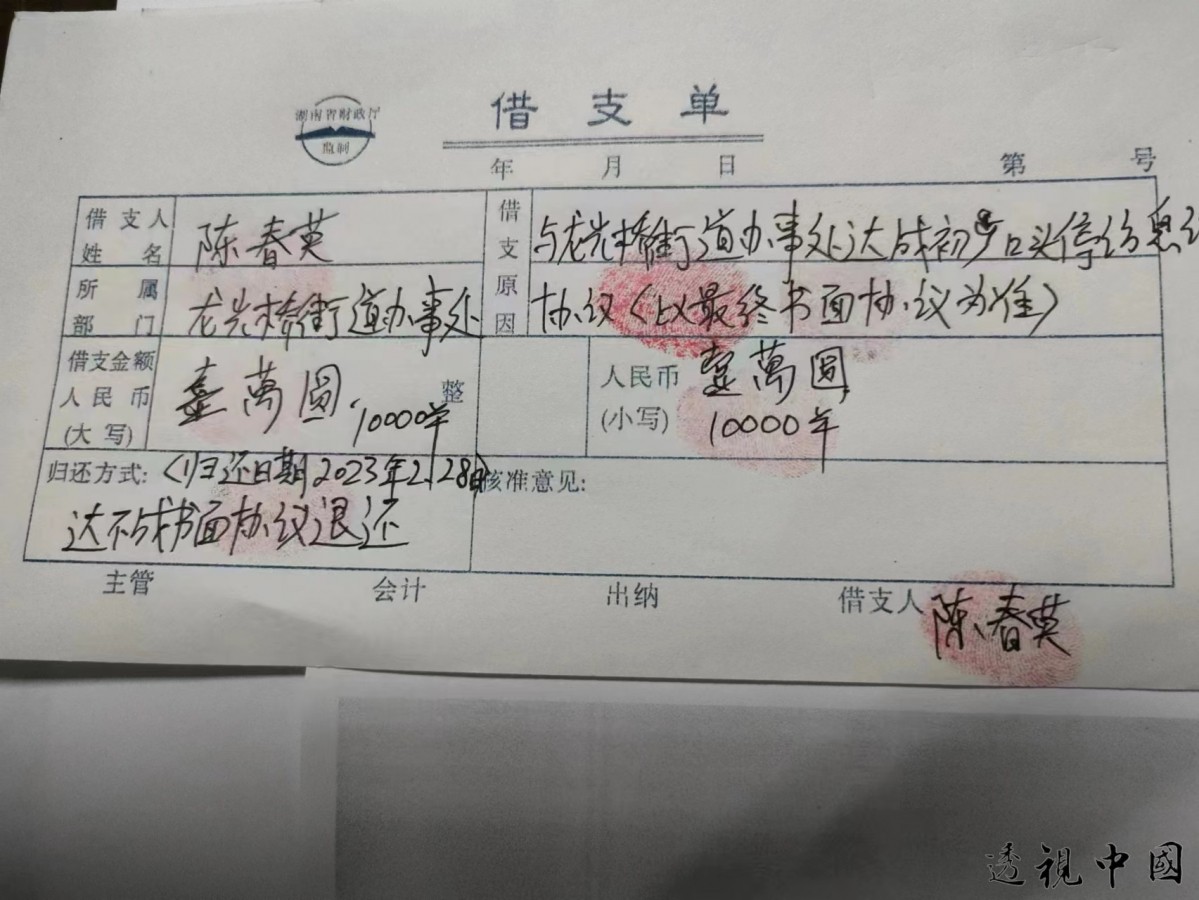 湖南省财政厅
监制
借支单
年 月 日 第 号
借支人
姓名
陈春英
借支原因
与龙光桥街道办事处达成初步口头停访息
协议(以最终书面协议为准)
所属
部门
龙光桥街道办事处
借支金额
人民币
(大写)
壹萬圓.
整
10000
人民币
(小写)
壹萬圓
10000
归还方式:
(归还日期2023年2.28日)
达不成书面协议退还
核准意见:
主管 会计 出纳 借支人 陈春英
透視中國